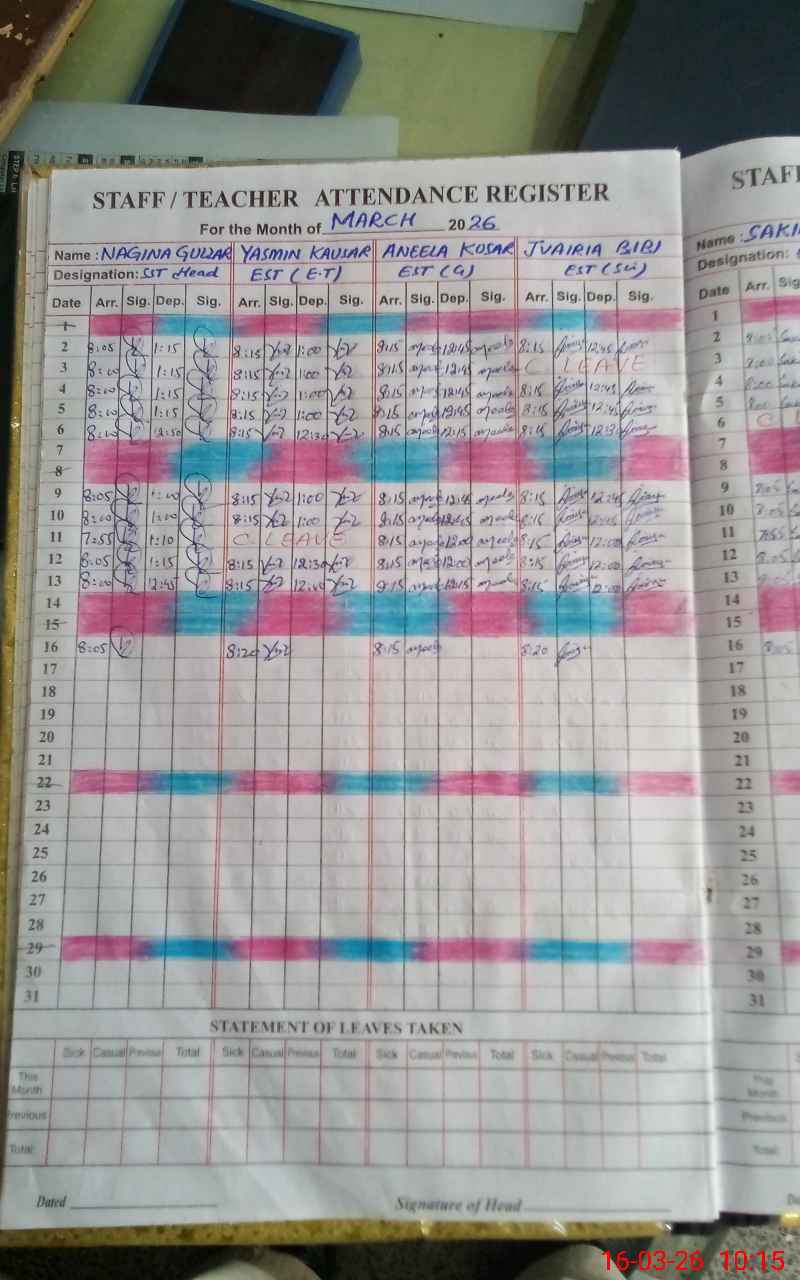 STAFF / TEACHER ATTENDANCE REGISTER
For the Month of MARCH 2026
Name : NAGINA GULZAR YASMIN KAUSAR ANEELA KOSAR JVAIRIA BIBI
Designation: SST Head EST (E.T) EST (G) EST (Sci)
Date Arr. Sig. Dep. Sig. Arr. Sig. Dep. Sig. Arr. Sig. Dep. Sig. Arr. Sig. Dep. Sig.
1
2 8:05 1:15 8:15 1:00 8:15 12:45 8:15 12:45
3 8:00 1:15 8:15 1:00 8:15 12:45 C. LEAVE
4 8:00 1:15 8:15 1:00 8:15 12:45 8:15 12:45
5 8:00 1:15 8:15 1:00 8:15 12:45 8:15 12:45
6 8:00 12:30 8:15 12:30 8:15 12:15 8:15 12:30
7
8
9 8:05 1:00 8:15 1:00 8:15 12:45 8:15 12:45
10 8:00 1:00 8:15 1:00 8:15 12:45 8:15 12:45
11 7:55 1:10 C. LEAVE 8:15 12:00 8:15 12:00
12 8:05 1:15 8:15 12:30 8:15 12:00 8:15 12:00
13 8:00 12:45 8:15 12:40 8:15 12:15 8:15 12:00
14
15
16 8:05 8:20 8:15 8:20
17
18
19
20
21
22
23
24
25
26
27
28
29
30
31
STATEMENT OF LEAVES TAKEN
Sick Casual Previous Total Sick Casual Previous Total Sick Casual Previous Total Sick Casual Previous Total
This Month
Previous
Total
Dated Signature of Head
STAFF
Name : SAKI
Designation:
Date Arr. Sig
1
2 8:05
3 8:00
4 8:00
5 8:00
6 C
7
8
9 8:05
10 8:05
11 7:55
12 8:05
13 8:05
14
15
16 8:05
17
18
19
20
21
22
23
24
25
26
27
28
29
30
31
This Month
Previous
Total
16-03-26 10:15